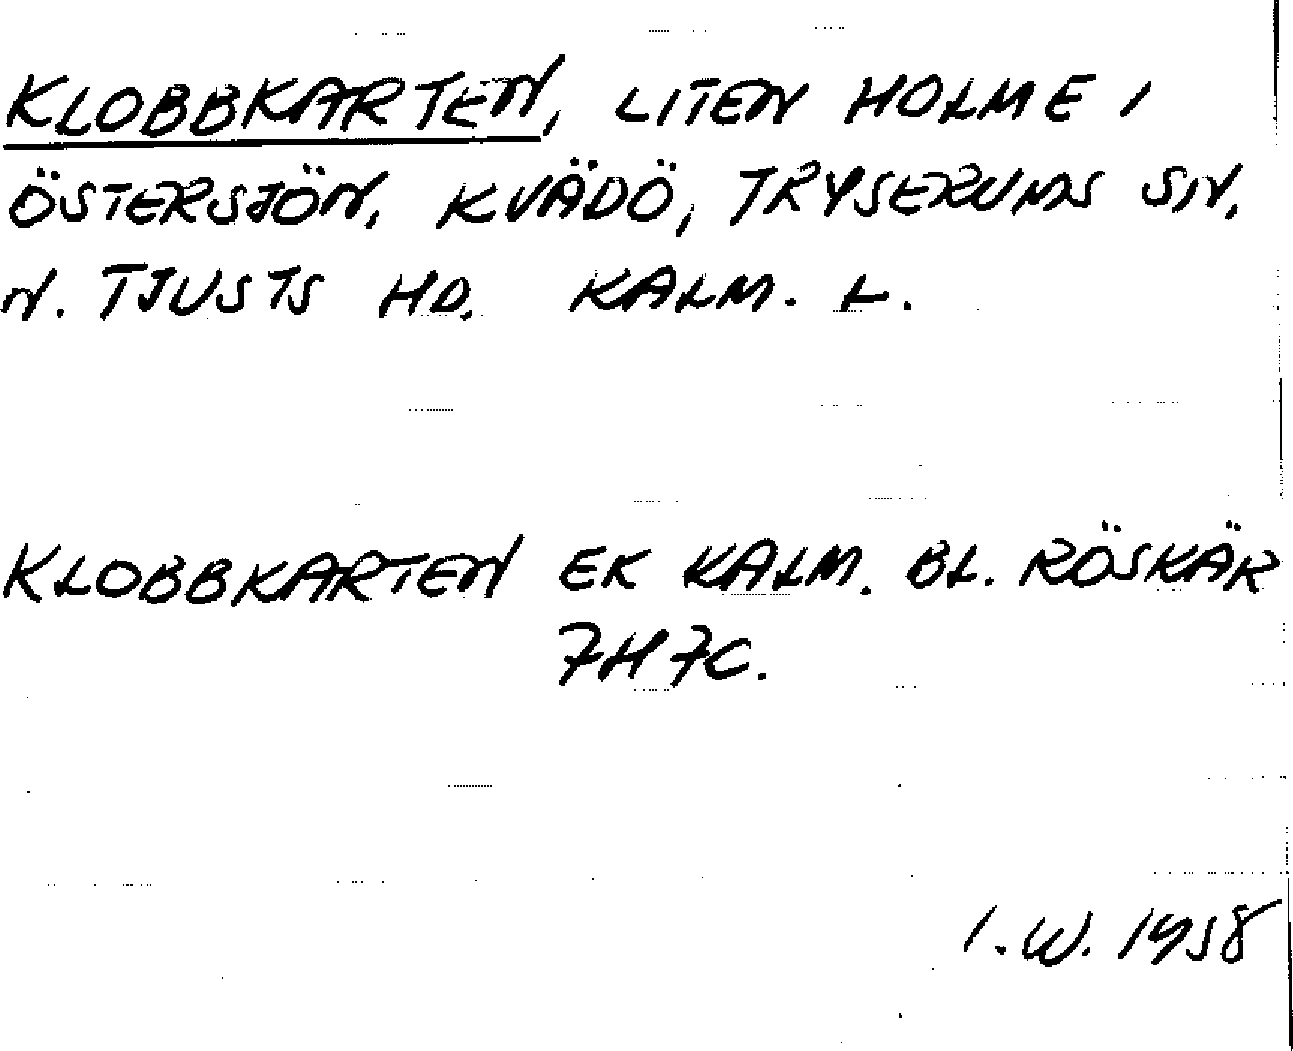 KLOBBKARTEN, LITEN HOLME I
ÖSTERSJÖN, KVÄDÖ, TRYSERUMS SN,
N. TJUSTS HD. KALM. L.
KLOBBKARTEN EK KALM. BL. RÖSKÄR
7H7C.
I.W. 1958